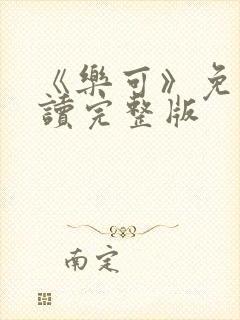 《樂可》免
讀完整版
南定